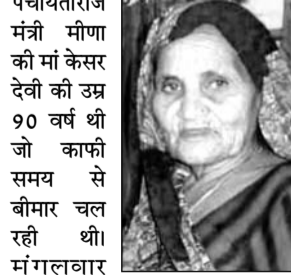 पंचायतीराज
मंत्री मीणा
की मां केसर
देवी की उम्र
90 वर्ष थी
जो काफी
समय से
बीमार चल
रही थी।
मंगलवार